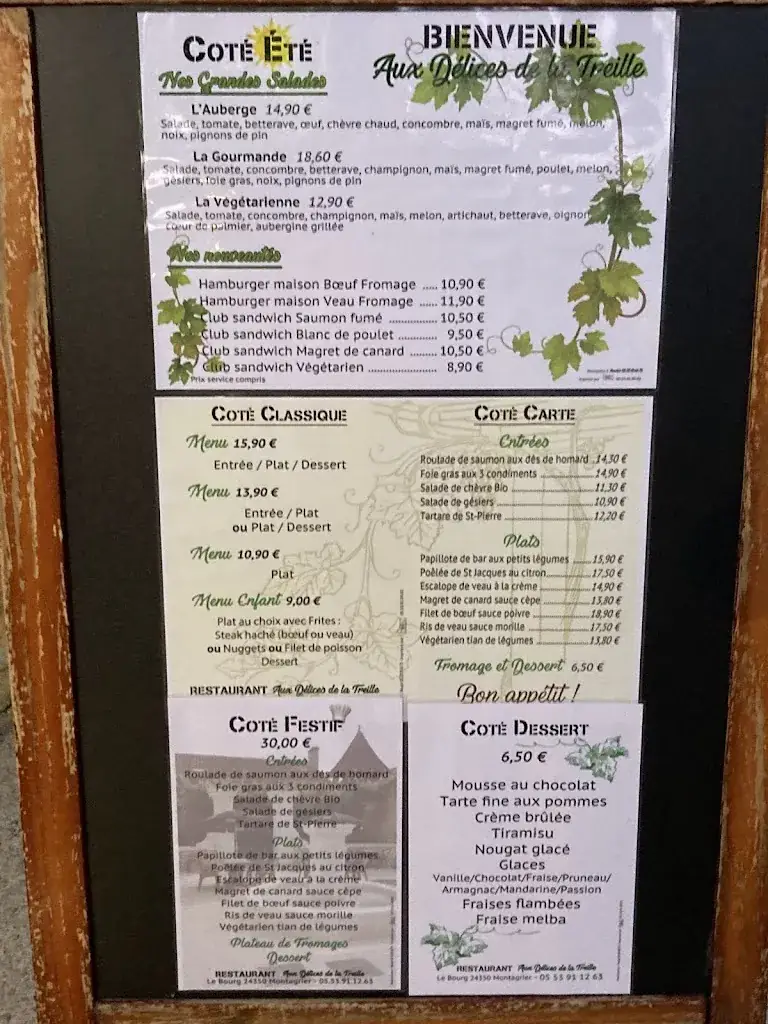 COTÉ ÉTÉ
Nos Grandes Salades
BIENVENUE
Aux Délices de la Treille
L'Auberge 14,90 €
Salade, tomate, betterave, œuf, chèvre chaud, concombre, maïs, magret fumé, melon,
noix, pignons de pin
La Gourmande 18,60 €
Salade, tomate, concombre, betterave, champignon, maïs, magret fumé, poulet, melon,
gésiers, foie gras, noix, pignons de pin
La Végétarienne 12,90 €
Salade, tomate, concombre, champignon, maïs, melon, artichaut, betterave, oignon
cœur de palmier, aubergine grillée
Nos nouveautés
Hamburger maison Bœuf Fromage ..... 10,90 €
Hamburger maison Veau Fromage ...... 11,90 €
Club sandwich Saumon fumé ................ 10,50 €
Club sandwich Blanc de poulet ............. 9,50 €
Club sandwich Magret de canard ......... 10,50 €
Club sandwich Végétarien ....................... 8,90 €
Prix service compris
COTÉ CLASSIQUE
Menu 15,90 €
Entrée / Plat / Dessert
Menu 13,90 €
Entrée / Plat
ou Plat / Dessert
Menu 10,90 €
Plat
Menu Enfant 9,00 €
Plat au choix avec Frites :
Steak haché (bœuf ou veau)
ou Nuggets ou Filet de poisson
Dessert
RESTAURANT Aux Délices de la Treille
COTÉ CARTE
Entrées
Roulade de saumon aux dés de homard ..14,30 €
Foie gras aux 3 condiments ............ 14,90 €
Salade de chèvre Bio ............ 11,30 €
Salade de gésiers ............ 10,90 €
Tartare de St-Pierre ............ 12,20 €
Plats
Papillote de bar aux petits légumes ......15,90 €
Poêlée de St Jacques au citron ............17,50 €
Escalope de veau à la crème ............ 14,90 €
Magret de canard sauce cèpe ............ 13,80 €
Filet de bœuf sauce poivre ............ 18,90 €
Ris de veau sauce morille ............ 17,50 €
Végétarien tian de légumes ............ 13,80 €
Fromage et Dessert 6,50 €
Bon appétit !
COTÉ FESTIF
30,00 €
Entrées
Roulade de saumon aux dés de homard
Foie gras aux 3 condiments
Salade de chèvre Bio
Salade de gésiers
Tartare de St-Pierre
Plats
Papillote de bar aux petits légumes
Poêlée de St Jacques au citron
Escalope de veau à la crème
Magret de canard sauce cèpe
Filet de bœuf sauce poivre
Ris de veau sauce morille
Végétarien tian de légumes
Plateau de Fromages
Dessert
RESTAURANT Aux Délices de la Treille
Le Bourg 24350 Montagrier - 05 53 91 12 63
COTÉ DESSERT
6,50 €
Mousse au chocolat
Tarte fine aux pommes
Crème brûlée
Tiramisu
Nougat glacé
Glaces
Vanille/Chocolat/Fraise/Pruneau/
Armagnac/Mandarine/Passion
Fraises flambées
Fraise melba
RESTAURANT Aux Délices de la Treille
Le Bourg 24350 Montagrier - 05 53 91 12 63